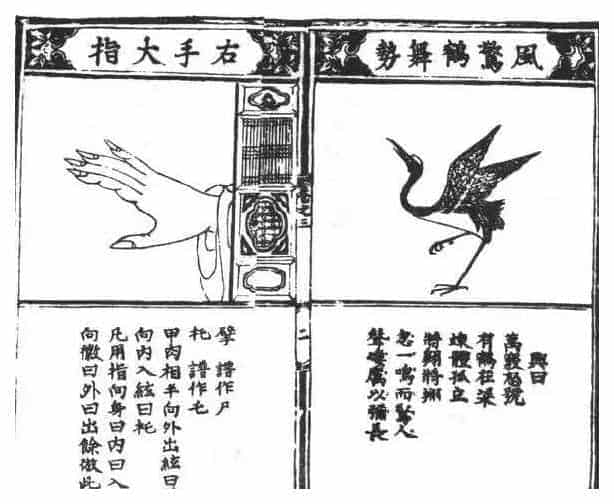 風驚鶴舞勢
興曰
萬竅怒號
有鶴在梁
竦體孤立
將翺將翔
忽一鳴而驚人
聲凄厲以彌長
卷之三
二
右手大指
擘 譜作尸
托 譜作乇
甲肉相半向外出絃曰
向內入絃曰托
凡用指向身曰內曰入
向徽曰外曰出餘倣此